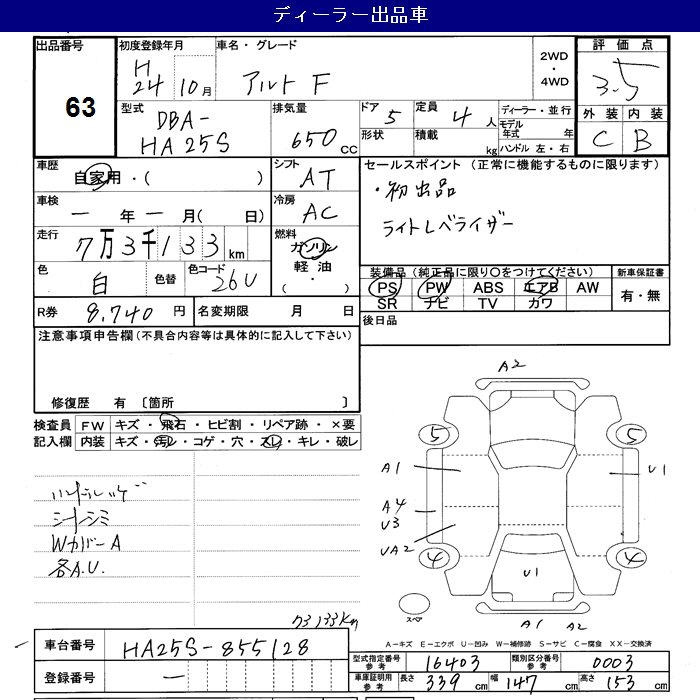 ディーラー出品車
出品番号 初度登録年月 車名・グレード 2WD・4WD 評価点
63 H24 10月 アルト F 3.5
型式 排気量 ドア 定員 ディーラー・並行 外装 内装
DBA-HA25S 650cc 5 4人 モデル年式 年 C B
形状 積載 kg ハンドル 左・右
車歴 シフト セールスポイント (正常に機能するものに限ります)
自家用・( ) AT ・初出品
車検 冷房 ライトレベライザー
一年一月( 日) AC
走行 燃料
7万3千133km ガソリン
色 色替 色コード 軽油
白 26U ( ・ )
装備品(純正品に限り〇をつけてください) 新車保証書
PS PW ABS エアB AW 有・無
SR ナビ TV カワ
R券 8,740円 名変期限 月 日 後日品
注意事項申告欄(不具合内容等は具体的に記入して下さい)
修復歴 有 〔箇所 〕
検査員 FW キズ・飛石・ヒビ割・リペア跡・×要
記入欄 内装 キズ・汚レ・コゲ・穴・スレ・キレ・破レ
シートシミ
WカバーA
各A.U.
A2
5 5
A1 U1
A4
U3
UA2
4 4
U1
スペア
A1 A2
73133Km
A-キズ E-エクボ U-凹み W-補修跡 S-サビ C-腐食 XX-交換済
車台番号 HA25S-855128
型式指定番号参考 16403 類別区分番号参考 0003
登録番号 一
車庫証明用参考 長さ 339cm 幅 147cm 高さ 153cm